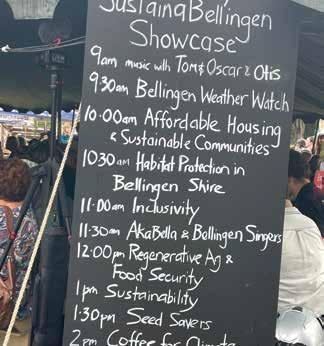 SustainaBellingen
Showcase
9am music with Tom & Oscar & Otis
9.30am Bellingen Weather Watch
10.00am Affordable Housing
& Sustainable Communities
10.30am Habitat Protection in
Bellingen Shire
11.00am Inclusivity
11.30am AkaBella & Bellingen Singers
12:00pm Regenerative Ag &
Food Security
1pm Sustainability
1.30pm Seed Savers
2pm Coffee for Climate